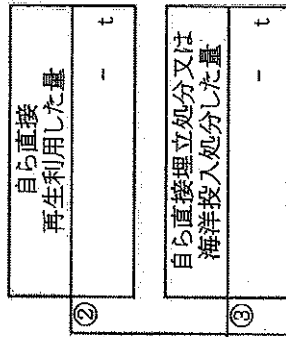 自ら直接
再生利用した量
② － t
自ら直接埋立処分又は
海洋投入処分した量
③ － t